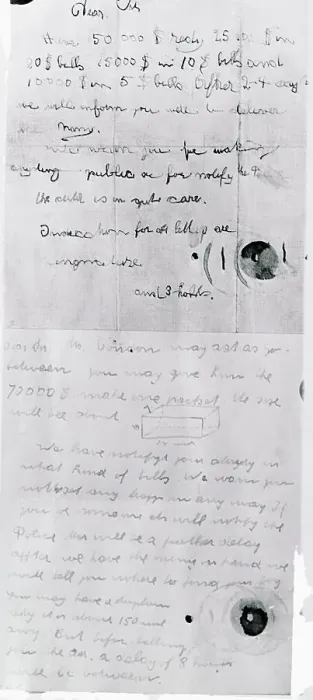 Dear Sir
Have 50 000 $ redy 25 000 $ in
20 $ bills 15000 $ in 10 $ bills and
10000 $ in 5 $ bills After 2-4 days
we will inform you were to deliver
the mony.
We warn you for making
anyding public or for notify the
the child is in gute care.
for all letters are
singnature
and 3 holds.
may act as go-
between you may give him the
70000 $ make one packet. the size
will bee about
We have notifyt you already in
what kind of bills. We warn you
not to set any trapp in any way. If
you or someone els will notify the
Police ther will be a further delay
affter we have the mony in hand we
will tell you where to find your boy
You may have a airplane
redy it is about 150 mil
away. But befor telling
you the adr. a delay of 8 houers
will be between.